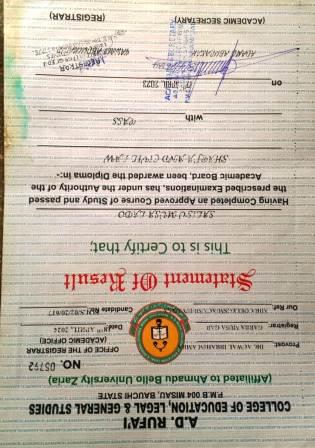 A.D. RUFA'I
COLLEGE OF EDUCATION, LEGAL & GENERAL STUDIES
P.M.B 004 MISAU, BAUCHI STATE
(Affiliated to Ahmadu Bello University Zaria)
OFFICE OF THE REGISTRAR
(ACADEMIC OFFICE)
NO. 05772
Provost: DR. AUWAL IBRAHIM
Registrar: GARBA MUSA GAR
Date: 18TH APRIL, 2024
Our Ref:
Candidate No:
Statement Of Result
This is to Certify that;
SALISU MUSA LADO
Having Completed an Approved Course of Study and passed
the prescribed Examinations, has under the Authority of the
Academic Board, been awarded the Diploma in:-
SHARIA AND CIVIL LAW
with PASS
on 17 APRIL 2023
(ACADEMIC SECRETARY)
(REGISTRAR)